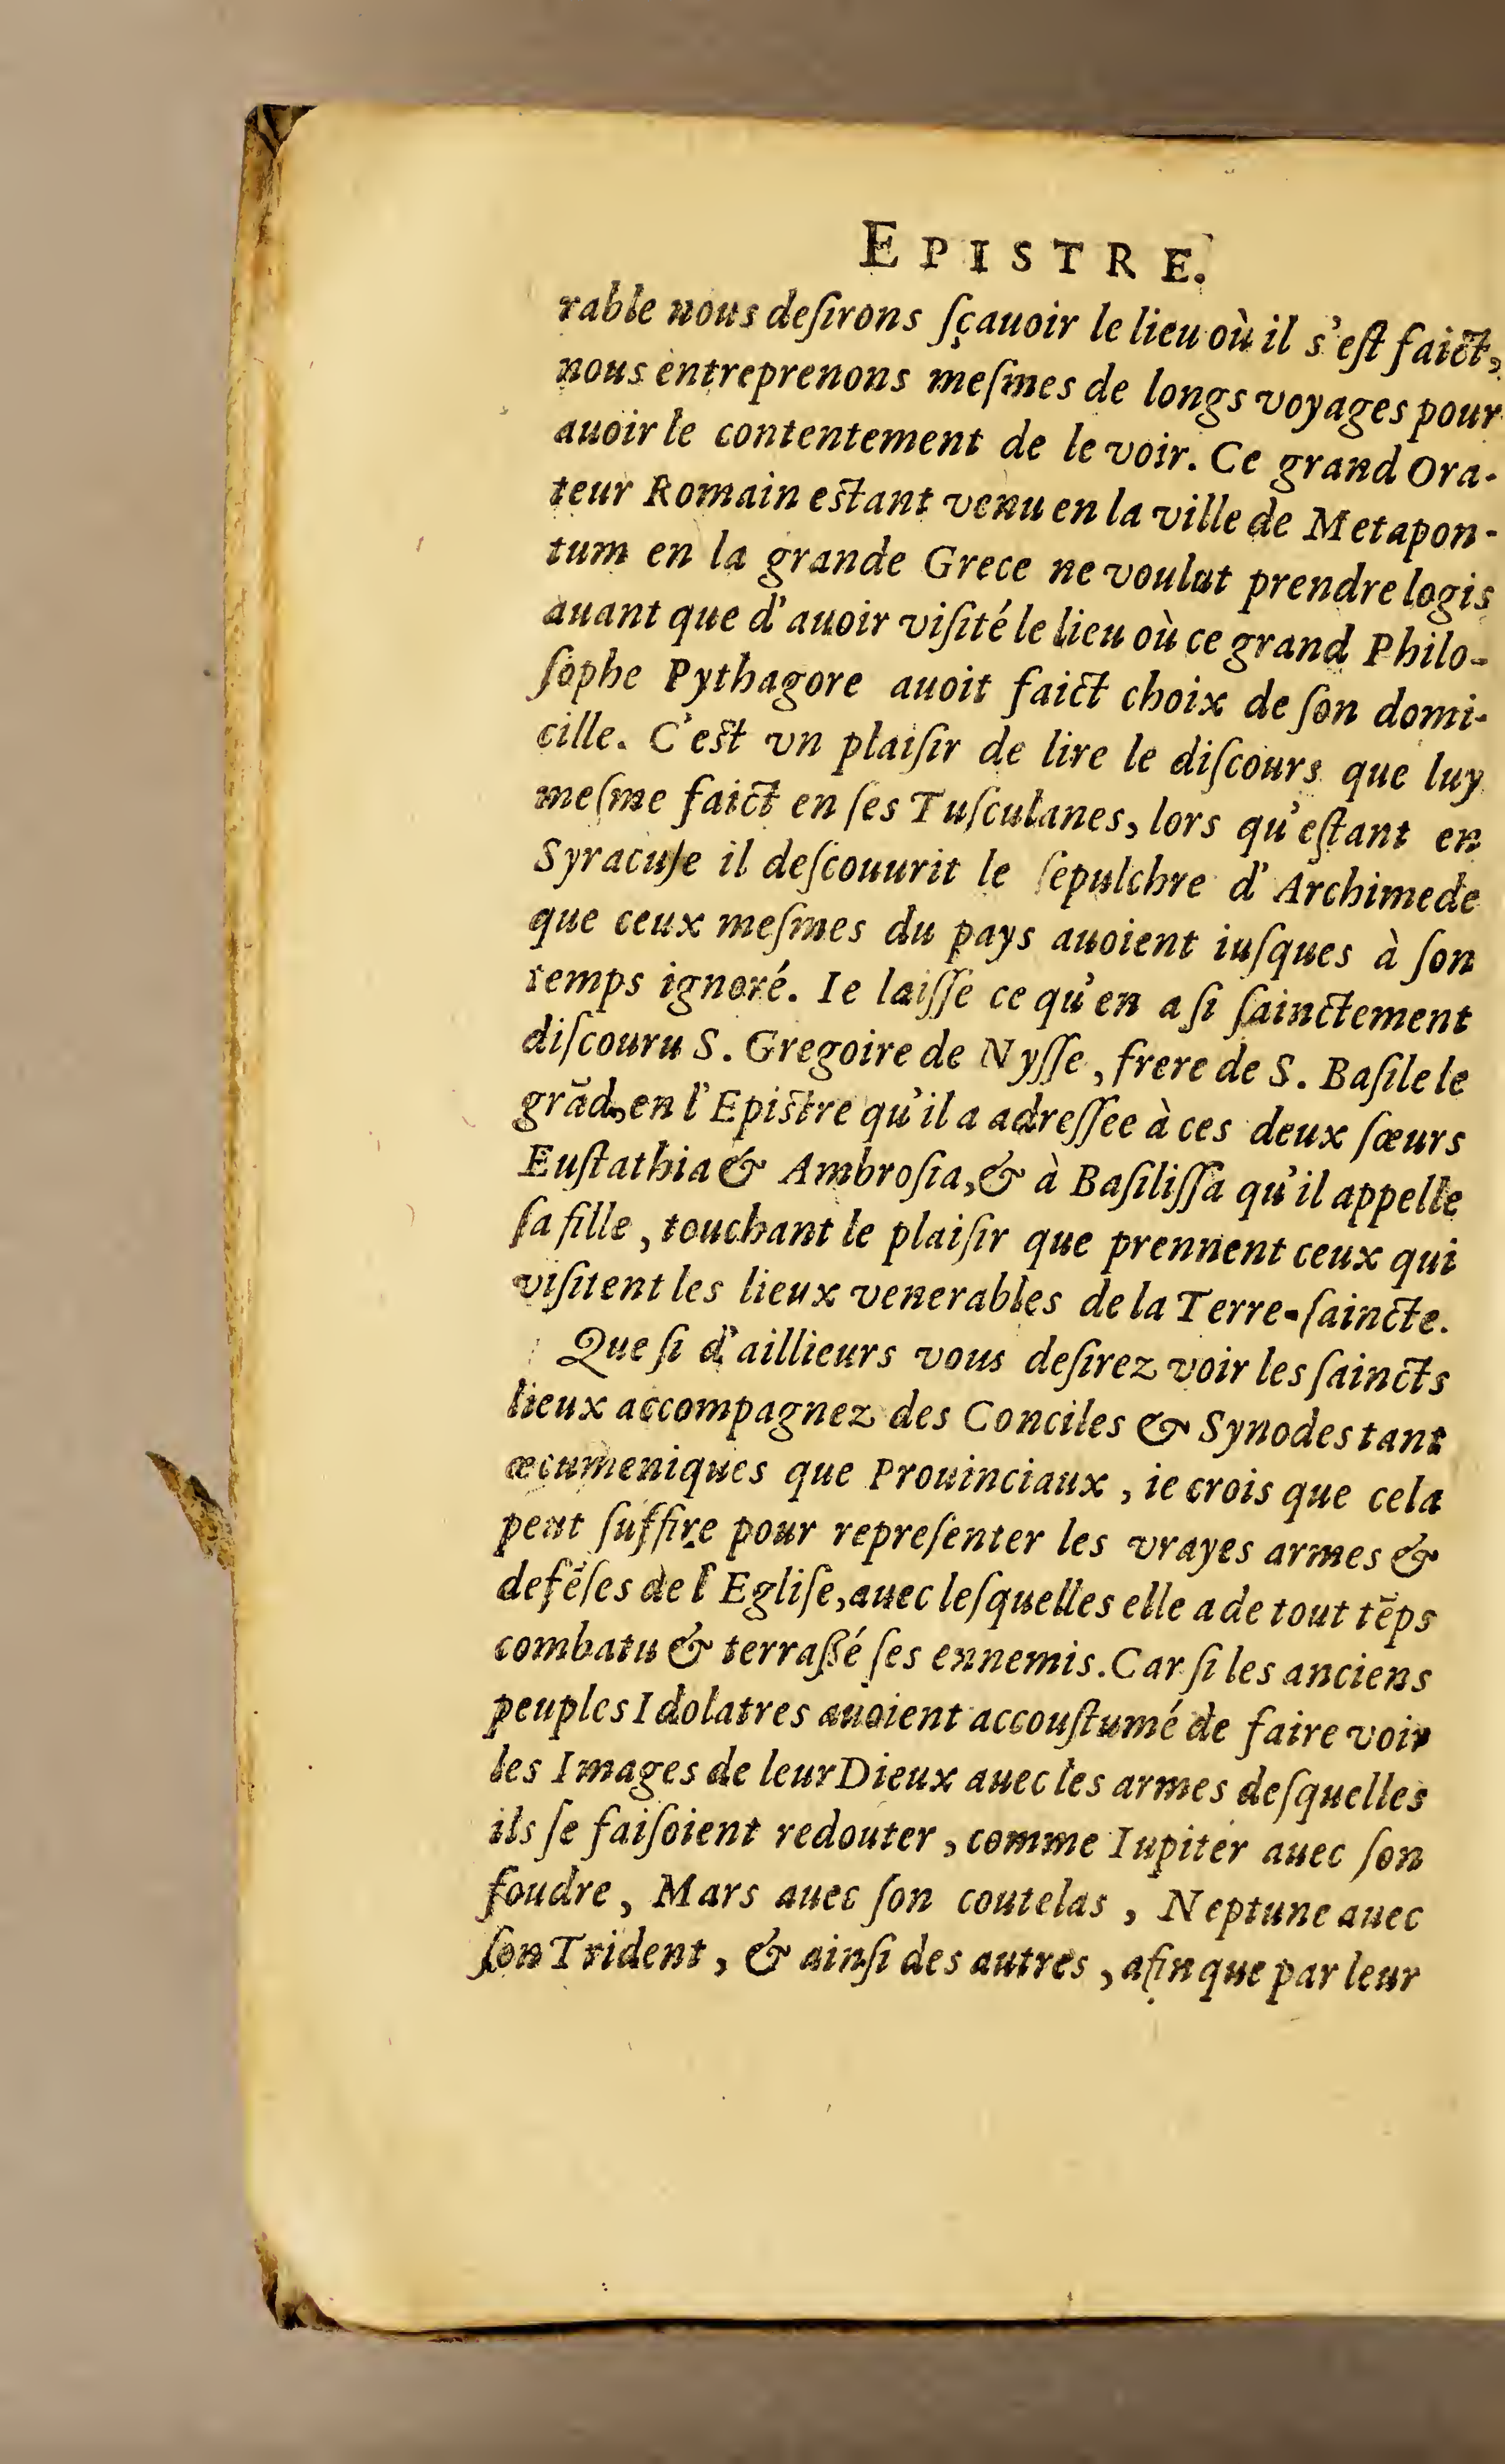 EPISTRE.
rable nous deſirons ſçauoir le lieu où il s'eſt faict,
nous entreprenons meſmes de longs voyages pour
auoir le contentement de le voir. Ce grand Ora-
teur Romain eſtant venu en la ville de Metapon-
tum en la grande Grece ne voulut prendre logis
auant que d'auoir viſité le lieu où ce grand Philo-
ſophe Pythagore auoit faict choix de ſon domi-
cille. C'eſt vn plaiſir de lire le diſcours que luy
meſme faict en ſes Tuſculanes, lors qu'eſtant en
Syracuſe il deſcouurit le ſepulchre d'Archimede
que ceux meſmes du pays auoient iuſques à ſon
temps ignoré. Ie laiſſe ce qu'en a ſi ſainctement
diſcouru S. Gregoire de Nyſſe, frere de S. Baſile le
grād, en l'Epiſtre qu'il a adreſſee à ces deux ſœurs
Euſtathia & Ambroſia, & à Baſiliſſa qu'il appelle
ſa fille, touchant le plaiſir que prennent ceux qui
viſitent les lieux venerables de la Terre-ſaincte.
Que ſi d'aillieurs vous deſirez voir les ſaincts
lieux accompagnez des Conciles & Synodes tant
œcumeniques que Prouinciaux, ie crois que cela
peut ſuffire pour repreſenter les vrayes armes &
defēſes de l'Egliſe, auec leſquelles elle a de tout tēps
combatu & terraßé ſes ennemis. Car ſi les anciens
peuples Idolatres auoient accouſtumé de faire voir
les Images de leur Dieux auec les armes deſquelles
ils ſe faiſoient redouter, comme Iupiter auec ſon
foudre, Mars auec ſon coutelas, Neptune auec
ſon Trident, & ainſi des autres, afin que par leur